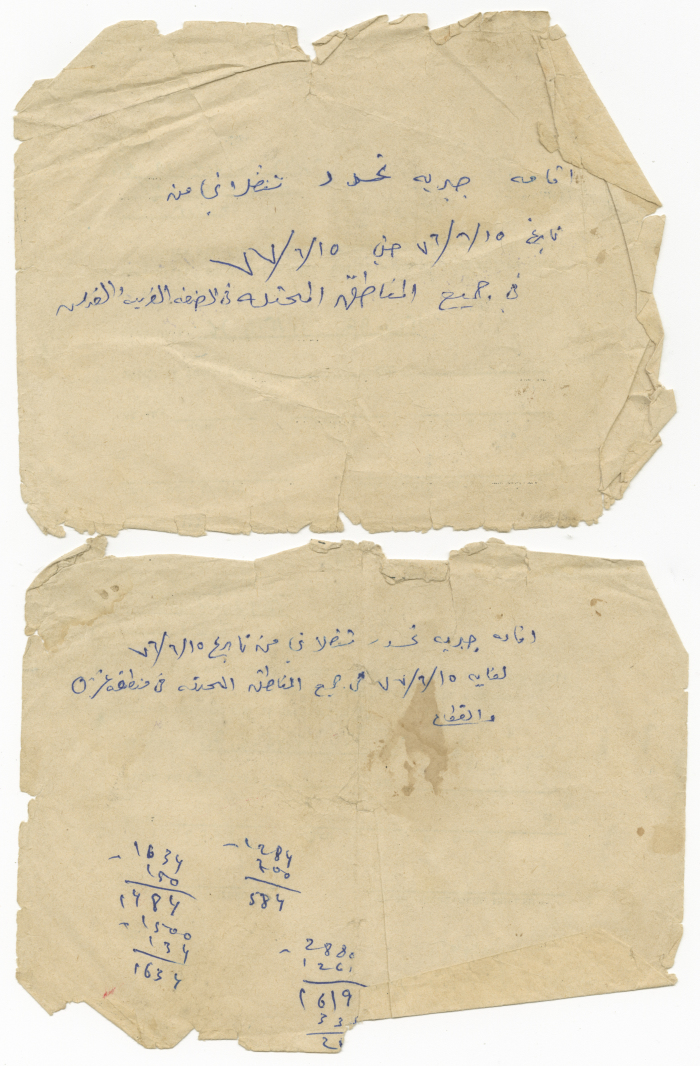 اقامه جبريه تحدد تنقلاتي من
تاريخ ٧٦/٦/١٥ حتى ٧٧/٦/١٥
في جميع المناطق المحتله في الضفه الغربيه والقدس
اقامه جبريه تحدد تنقلاتي من تاريخ ٧٦/٦/١٥
لغايه ٧٧/٦/١٥ في جميع المناطق المحتله في منطقة غزه
والقطاع
- 1634
150
1484
- 1500
134
1634
- 1284
700
584
- 2880
1261
1619